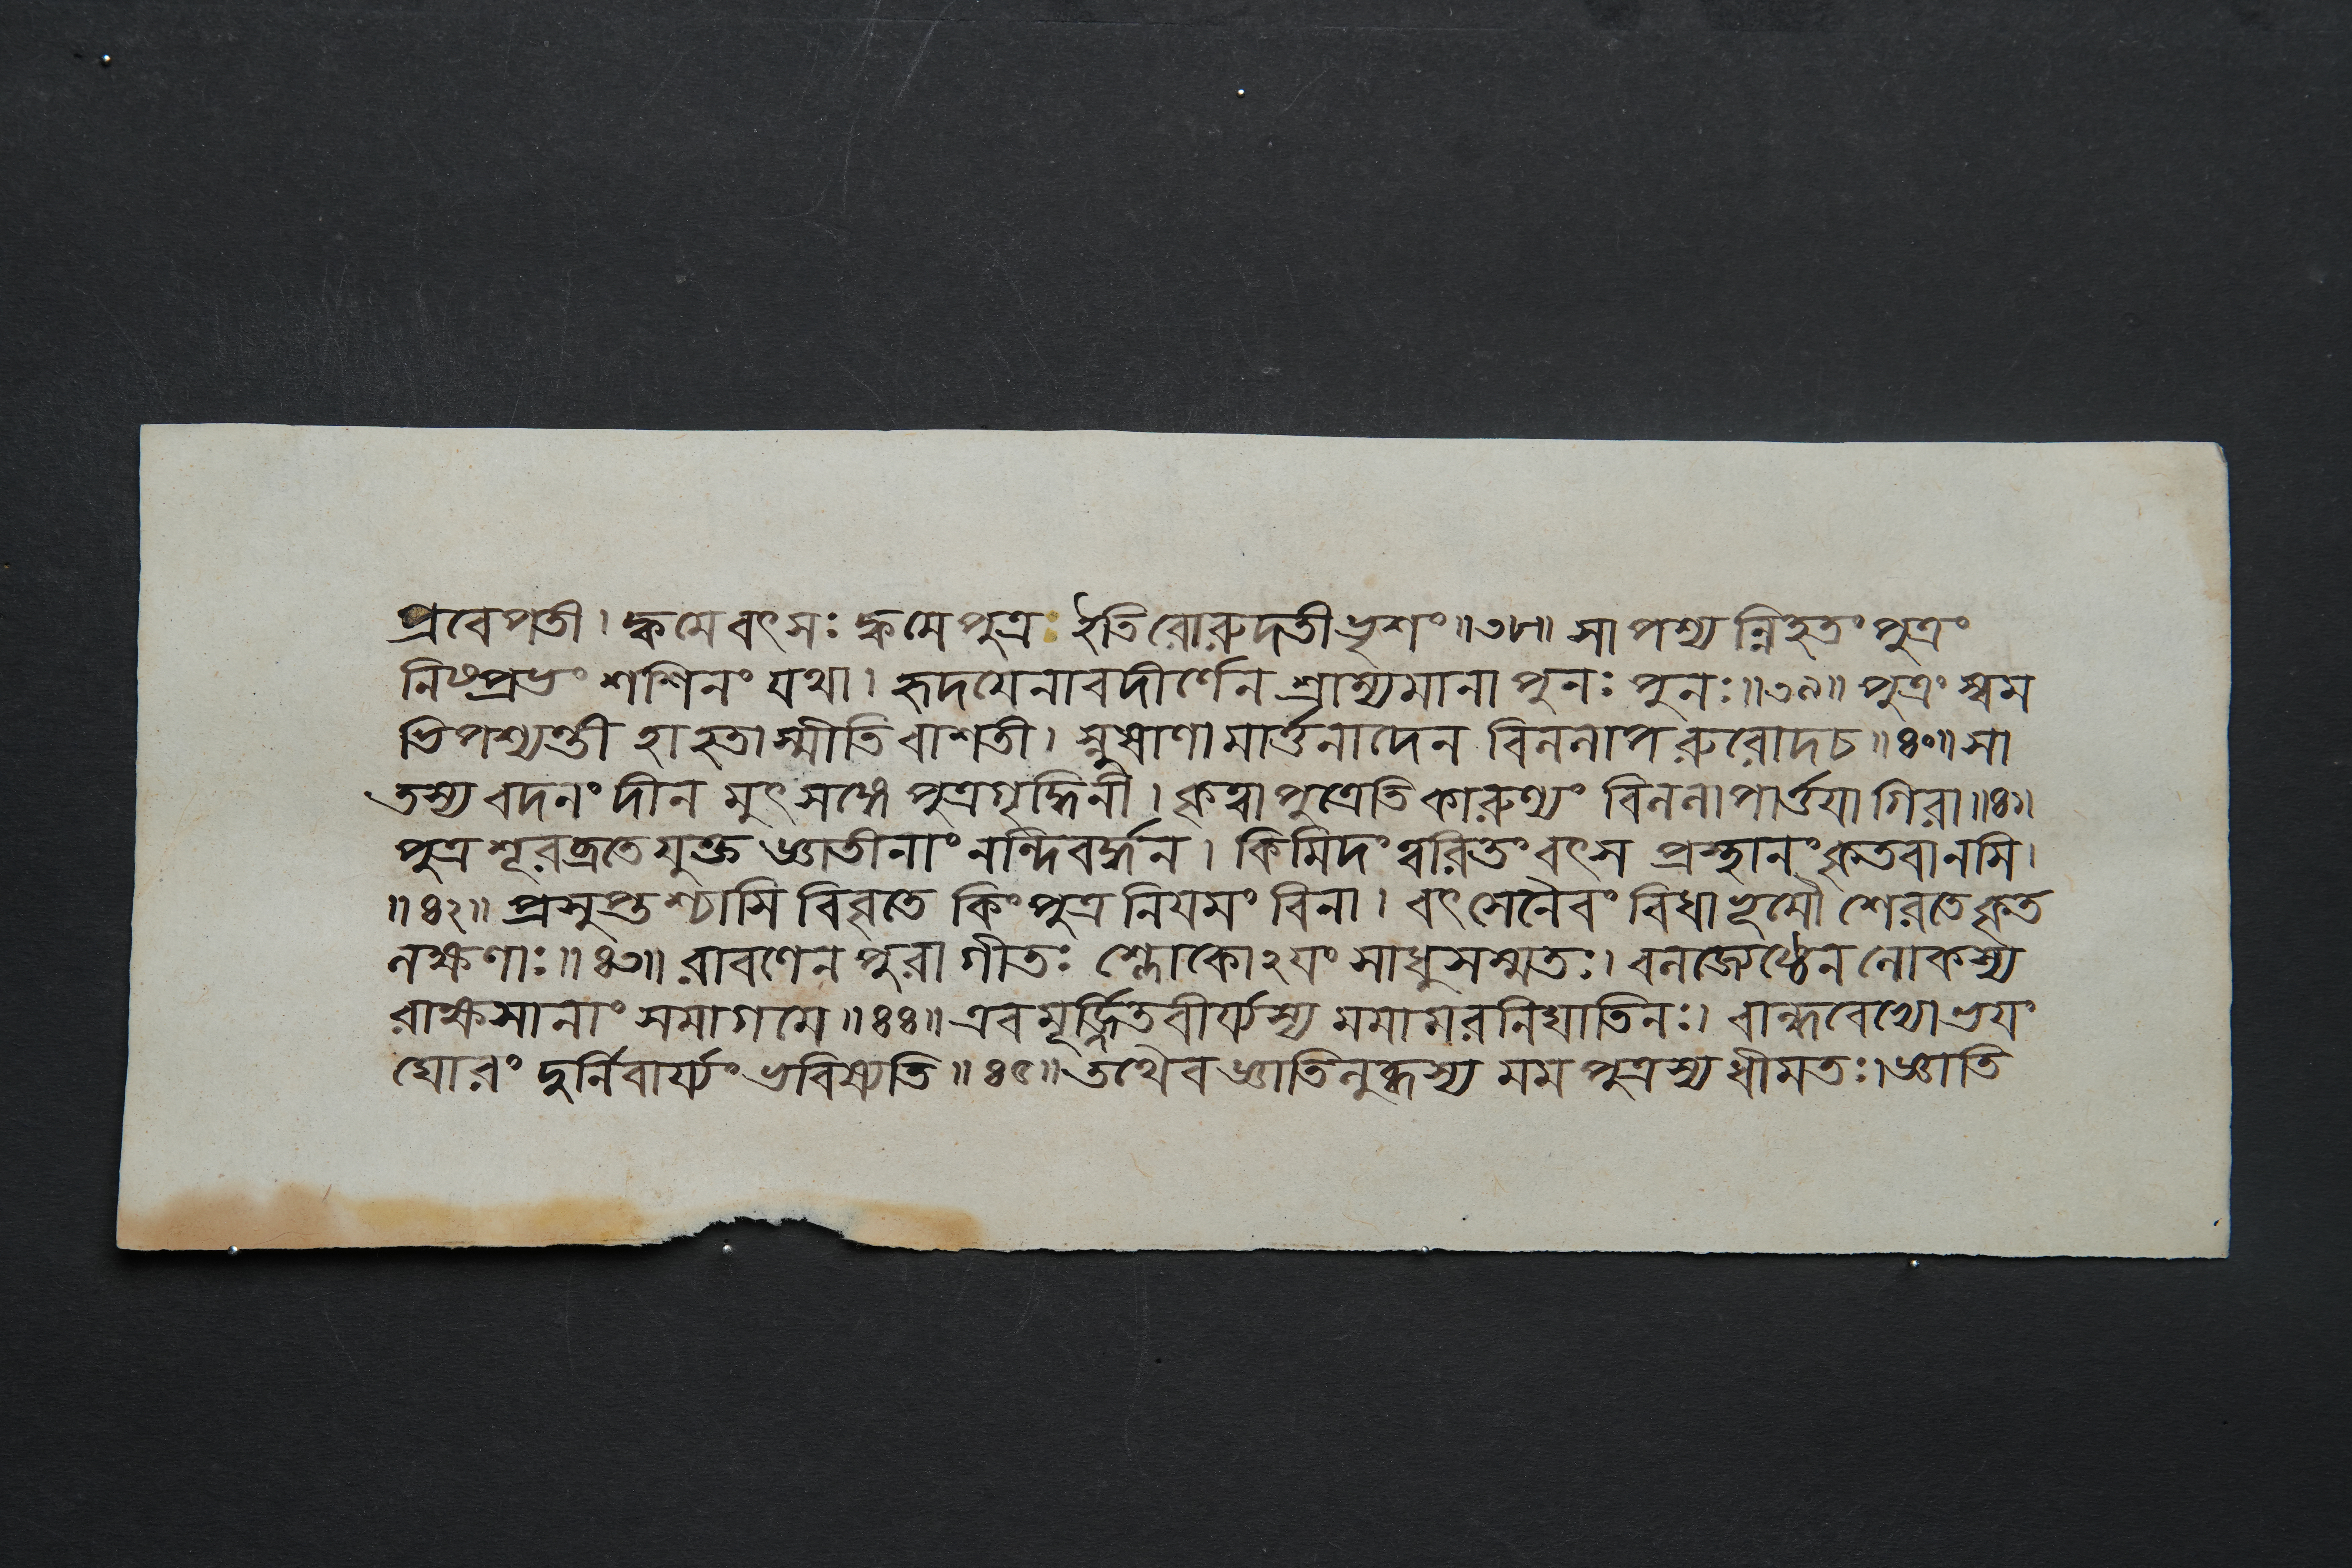 প্রবেপতী। ক্বমে বৎসঃ ক্বমে পুত্রঃ ইতি রোরুদতী ভৃশং॥৩৮॥ সা পশ্য ন্নিহতং পুত্রং
নিষ্প্রভং শশিনং যথা। হৃদয়েনাবদীর্ণেন শ্রাম্যমানা পুনঃ পুনঃ॥৩৯॥ পুত্রং স্বম
ভিপশ্যন্তী হা হতাস্মীতি বাশতী। স্নুষাণামার্ত্তনাদেন বিললাপ রুরোদ চ॥৪০॥ সা
তস্য বদনং দীন মুৎসঙ্গে পুত্রগৃদ্ধিনী। কৃত্বা পুত্রেতি কারুণ্যং বিললাপার্ত্তয়া গিরা॥৪১॥
পুত্র শূরব্রতে যুক্ত জ্ঞাতীনাং নন্দিবর্দ্ধন। কিমিদং ত্বরিতং বৎস প্রস্থানং কৃতবানসি।
॥৪২॥ প্রসুপ্তশ্চাসি বিবৃতে কিং পুত্র নিয়মং বিনা। বৎসেনৈবং বিধা ভূমৌ শেরতে কৃত
লক্ষণাঃ॥৪৩॥ রাবণেন পুরা গীতঃ শ্লোকোঽয়ং সাধুসম্মতঃ। বলজ্যেষ্ঠেন লোকস্য
রাক্ষসানাং সমাগমে॥৪৪॥ এবমূর্জ্জিতবীর্য্যস্য মমামরনিঘাতিনঃ। বান্ধবেভ্যো ভয়ং
ঘোরং দুর্নিবার্য্যং ভবিষ্যতি॥৪৫॥ তথৈব জ্ঞাতিলুব্ধস্য মম পুত্রস্য ধীমতঃ। জ্ঞাতি